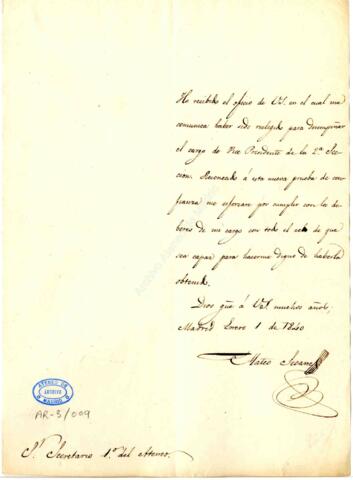 He recibido el oficio de VS. en el cual me
comunica haber sido reelegido para desempeñar
el cargo de Vice Presidente de la 2ª Sec-
cion. Reconocido á esta nueva prueba de con-
fianza me esforzare por cumplir con los de-
beres de mi cargo con todo el celo de que
sea capaz para hacerme digno de haberla
obtenido.
Dios gue á VS. muchos años.
Madrid Enero 1 de 1840
Mateo Seoane
ATENEO DE
ARCHIVO
MADRID
AR-3/009
Sr. Secretario 1º del Ateneo.